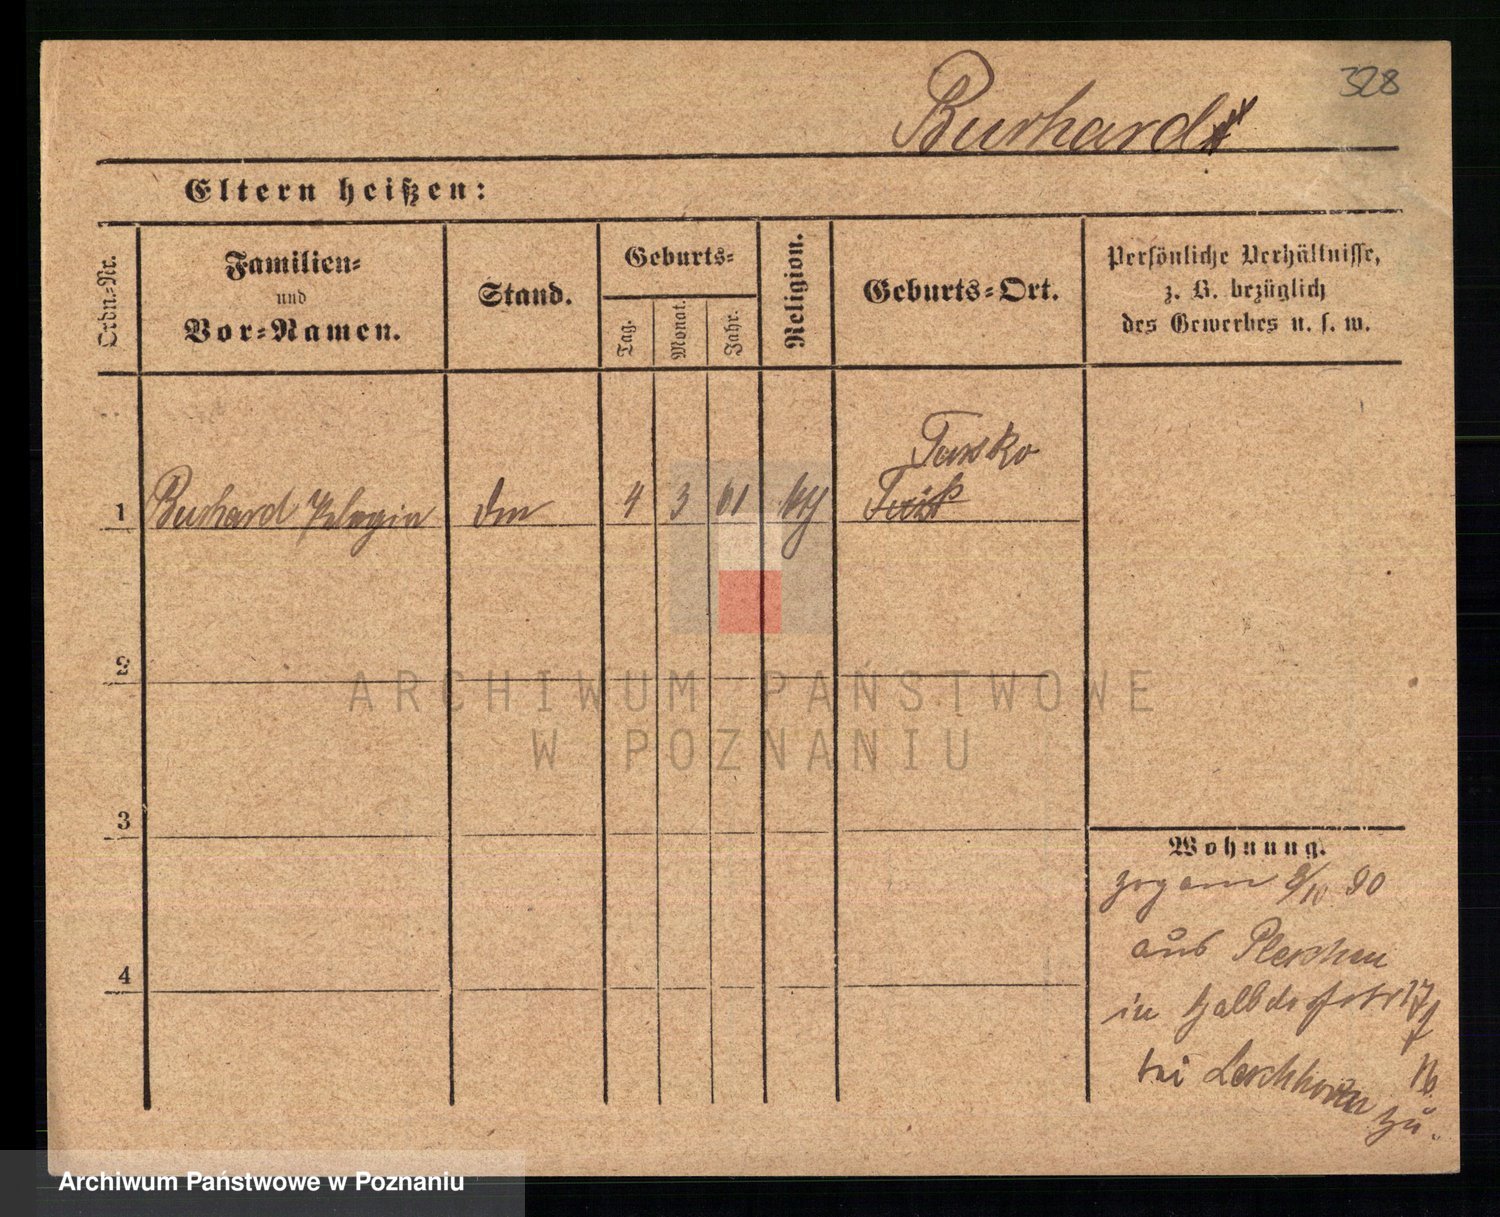 328
Burhard
Eltern heißen:
Ordn.-Nr.
Familien-
und
Vor-Namen.
Stand.
Geburts-
Tag.
Monat.
Jahr.
Religion.
Geburts-Ort.
Persönliche Verhältnisse,
z. B. bezüglich
des Gewerbes u. s. w.
Tursko
1 Burhard Pelagia 4 3 61
2
3
4
Wohnung.
am 8/10 90
aus Pleschen
in Halbdorfstr 17
bei
zu.
ARCHIWUM PAŃSTWOWE
W POZNANIU
Archiwum Państwowe w Poznaniu